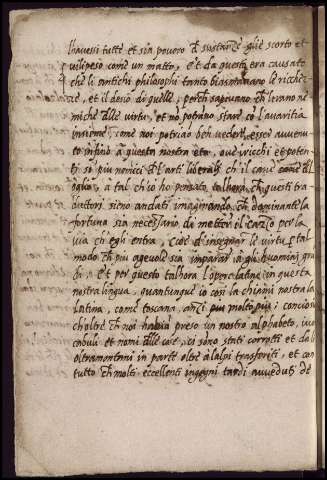 l'havessi tutte et sia povero di sustanze glie scorto et
vilipeso come un matto, et da questo era causato
che li antichi philosophi tanto biasimavano le ricchez-
ze, et il desio di quelle, perche sapevano ch'erano ne
miche delle virtu, et nõ potevano stare cõ l'avaritia
insieme, come noi potriamo ben vedere esser avvenu
to infino a questa nostra eta, ove i ricchi et poten-
ti so piu nemici dell'arti liberali ch'il cane
a tal ch'io ho pensato talhora, ch questi tra
duttori sieno andati imaginando, ch dominante la
fortuna sia necessario di metter il per la
via ch'egli entra, cioe d'insegnar le virtu tal
modo ch piu agevole sia imparar a gli huomini gra
di, et per questo talhora l'opere latine in questa
nostra lingua, quantunque io con la chiami nostra la
latina, come toscana, anzi piu molto piu; concios
ch'oltre ch noi preso un nostro alphabeto, i vo
caboli et nomi delle cose, ci sono stati corrotti et da li
oltramontani in parte oltre a l'alpi trasferiti, et con
tutto ch molti eccellenti ingegni tardi avveduti de